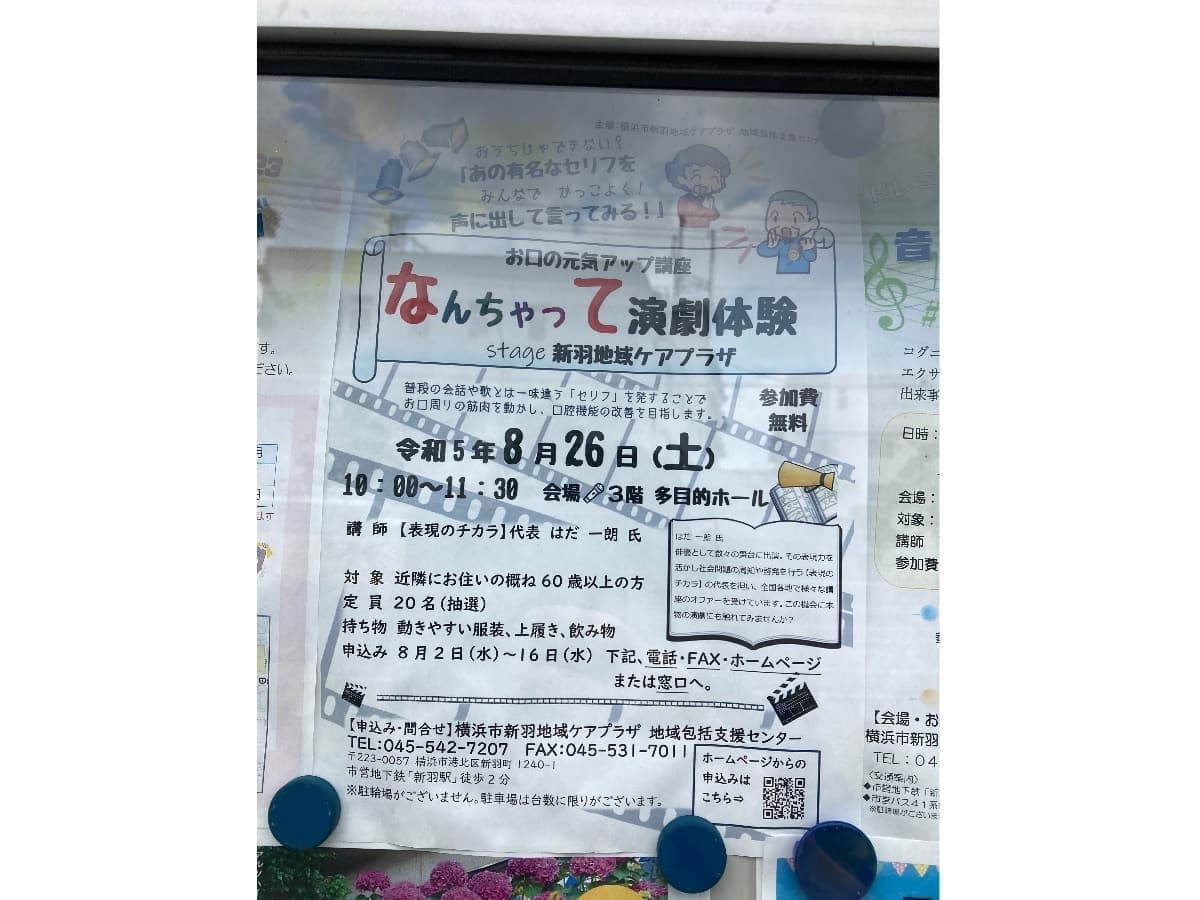 主催:横浜市新羽地域ケアプラザ 地域包括支援センター
おうちじゃできない?
「あの有名なセリフを
みんなで かっこよく!
声に出して言ってみる!」
お口の元気アップ講座
なんちゃって演劇体験
stage 新羽地域ケアプラザ
普段の会話や歌とは一味違う「セリフ」を発することで
お口周りの筋肉を動かし、口腔機能の改善を目指します。
参加費
無料
令和5年8月26日(土)
10:00~11:30 会場 3階 多目的ホール
講師 【表現のチカラ】代表 はだ 一朗 氏
はだ 一朗 氏
俳優として数々の舞台に出演。その表現力を
活かし社会問題の周知や啓発を行う【表現の
チカラ】の代表を担い、全国各地で様々な講
座のオファーを受けています。この機会に本
物の演劇にも触れてみませんか?
対象 近隣にお住いの概ね60歳以上の方
定員 20名(抽選)
持ち物 動きやすい服装、上履き、飲み物
申込み 8月2日(水)~16日(水) 下記、電話・FAX・ホームページ
または窓口へ。
【申込み・問合せ】横浜市新羽地域ケアプラザ 地域包括支援センター
TEL:045-542-7207 FAX:045-531-7011
〒223-0057 横浜市港北区新羽町 1240-1
市営地下鉄「新羽駅」徒歩2分
※駐輪場がございません。駐車場は台数に限りがございます。
ホームページからの
申込みは
こちら⇒
23
す。
ださい。
月
音
#
コグニ
エクサ
出来事
日時:
会場:
対象:
講師
参加費
【会場・お
横浜市新羽
TEL:04
〈交通案内〉
◆市営地下鉄「新
◆市営バス41系
※駐輪場がございませ